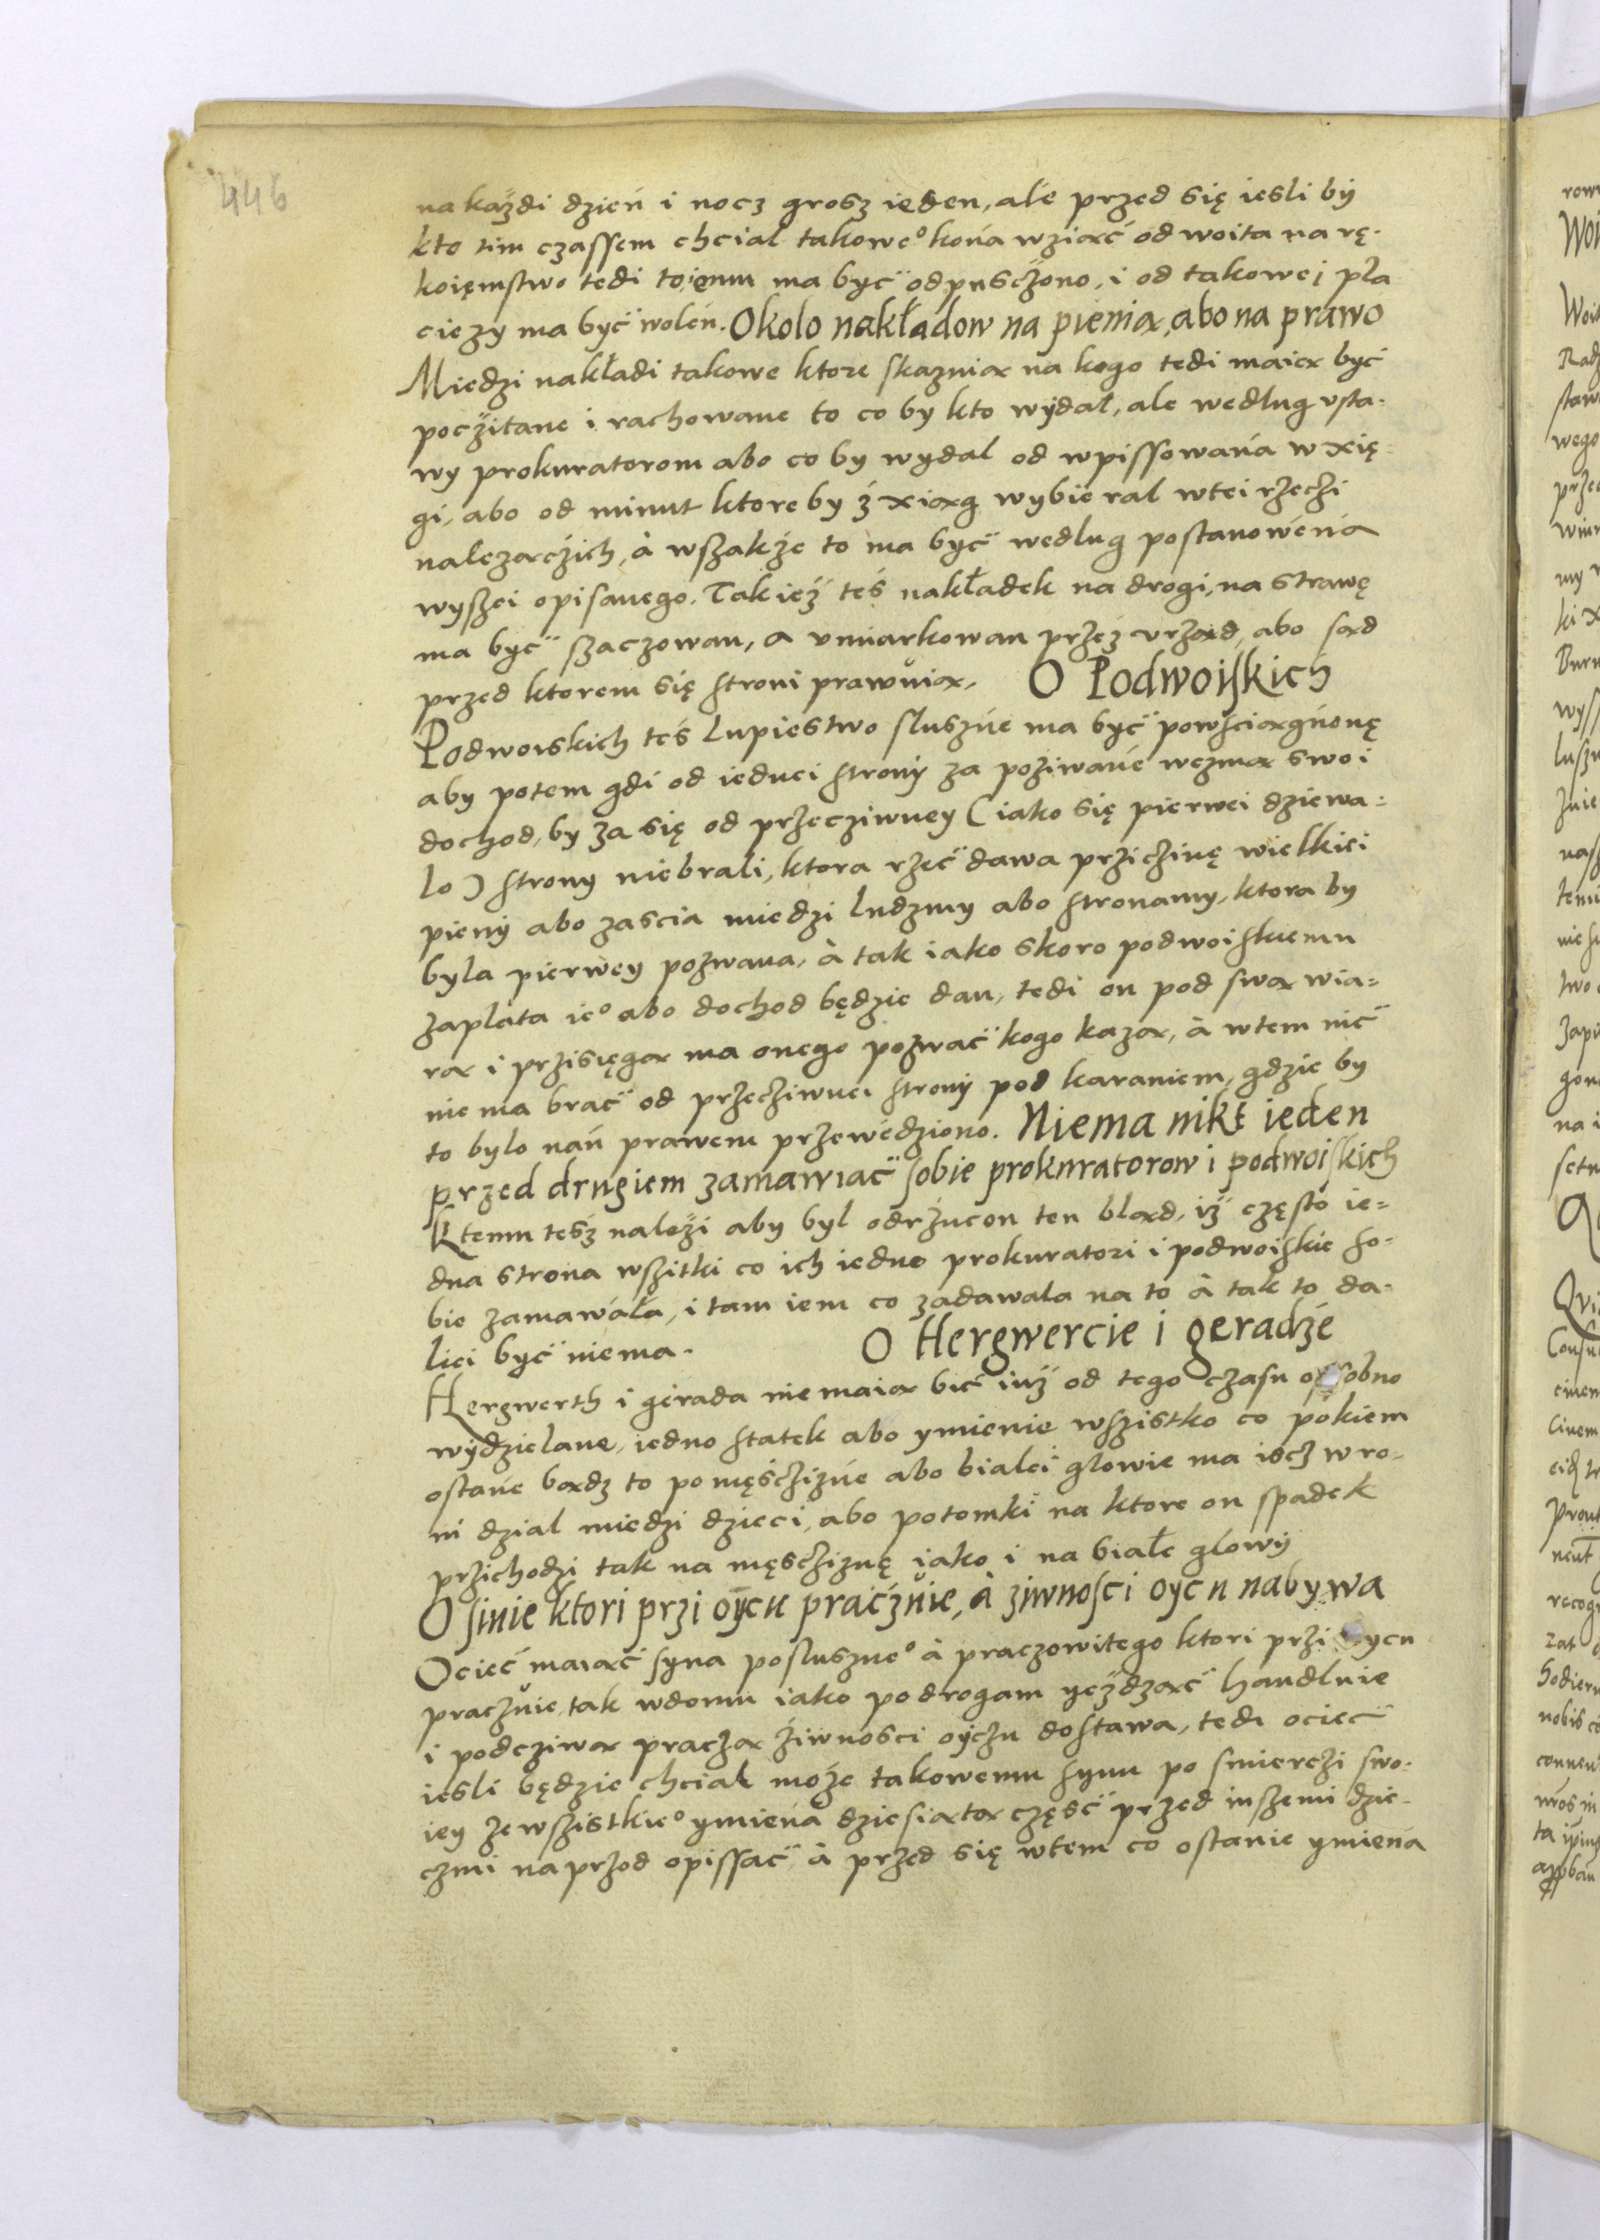 446
na każdi dzień i nocz grosz ieden, ale przed się iesli bÿ
kto tim czassem chcial takowe° końa wziąć od woita na rę-
koięmstwo tedi to iemu ma być odpusczżono, i od takowej pła
ciezy ma być wolen. Okolo nakładow na pienia, abo na prawo
Miedzi nakładi takowe ktore skaznią na kogo tedi maią być
poczitane i rachowane to co by kto wÿdal, ale wedlug vsta-
wy prokuratorom abo co by wydal od wpissowańa w xię-
gi, abo od minut ktore by ź xiąg wybieral wtei rzeczi
nalezączich, à wszakże to ma być wedlug postanoweńia
wyszei opisanego. Takież teś nakładek na drogi, na strawę
ma być szaczowan, a vmiarkowan przez vrząd, abo sąd
przed ktorem się stroni prawuią. O Podwoiskich
Podwoiskich teś lupiestwo sluszńe ma być powściągńonę
aby potem gdi od iednei strony za poziwańe wezmą swoi
dochod, by za się od przecziwney (iako się pierwei dziewa-
lo) strony niebrali, ktora rzeć dawa przicżinę wielkiei
pieny abo zascia miedzi ludzmy abo stronamy, ktora by
byla pierwey pozwana, à tak iako skoro podwoiskiemu
zaplata ie° abo dochod będzie dan, tedi on pod swą wia-
rą i przisięgą ma onego pozwać kogo kazą, à wtem nić
nie ma brać od przecziwnei strony pod karaniem, gdzie by
to bylo nań prawem przewedziono. Niema nikt ieden
przed drugiem zamawiać sobie prokuratorow i podwoiskich
Ktemu tesz należi aby byl odrzucon ten bląd, iż często ie-
dna strona wszitki co ich iedno prokuratori i podwoiskie so-
bie zamawáła, i tam iem co zadawala na to à tak to da-
liei być niema. O Hergwercie i geradźe
Hergwerth i gerada nie maią bić iuż od tego czasu ossobno
wÿdzielane, iedno statek abo ymienie wszistko co pokiem
ostańe bądz to po męścżizńe abo bialei glowie ma iścz w ro-
ni dzial miedzi dzieci, abo potomki na ktore on spadek
przichodzi tak na męsczżiznę iako i na białe glowÿ
O sinie ktori przi oÿcu praćzuie, à ziwnosci oycu nabywa
Ociec maiąć syna posluszne° à praczowitego ktori przi oycu
praczuie, tak wdomu iako po drogam yeżdząć handluie
i podcziwą praczą żiwnosci oÿczu dostawa, tedi ociec
iesli będzie chcial może takowemu synu po smierczi swo-
iey ze wszistkie° ymieńa dziesiątą część przed inszemi dzie-
czmi naprzod opissać, à przed się wtem co ostanie ymieńa